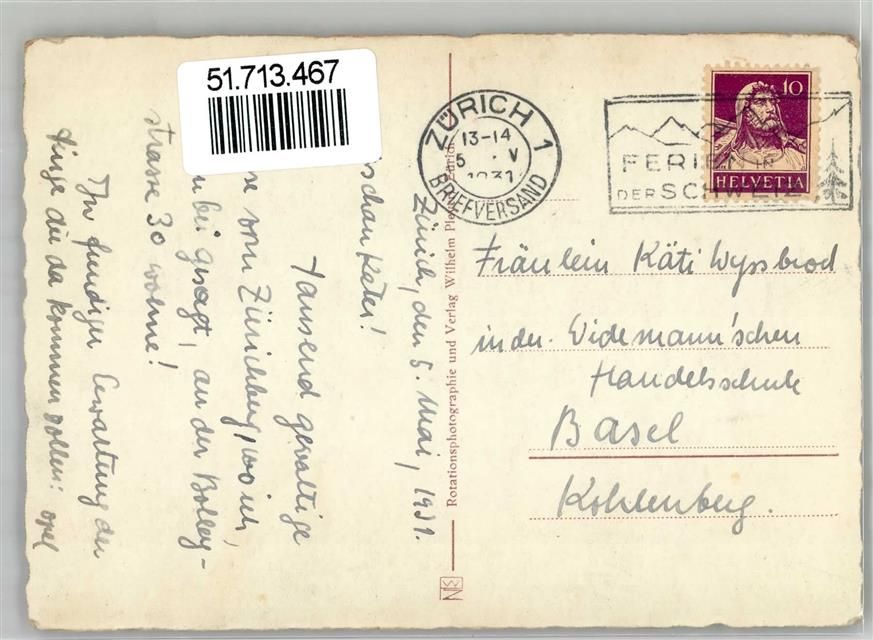 51.713.467
ZÜRICH 1
13-14
5. V
1931
BRIEFVERSAND
FERIEN IN
DER SCHWEIZ
10
HELVETIA
Zürich, den 5. Mai, 1931.
Tausend gewaltige
vom Zürichberg, wo ich,
bei gesagt, an der Bolley-
strasse 30 wohne!
Ihr fundiger Erwartung der
Dinge die da kommen sollen: opel
Rotationsphotographie und Verlag Wilhelm Zürich
Fräulein Käti Wyssbrod
in der Widemann'schen
Handelsschule
Basel
Kohlenberg.